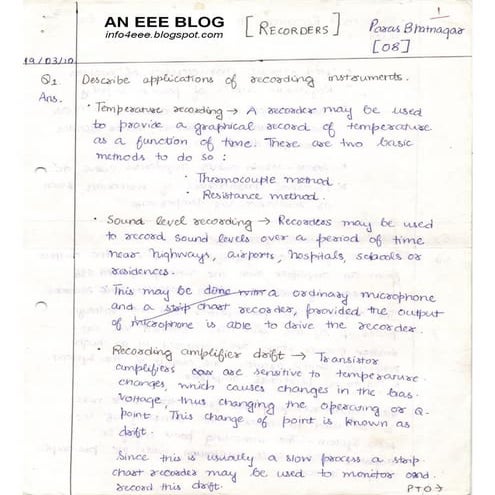 1
AN EEE BLOG
info4eee.blogspot.com
[RECORDERS]
Paras Bhatnagar
[08]
19/03/10
Q1 Describe applications of recording instruments.
Ans.
· Temperature recording → A recorder may be used
to provide a graphical record of temperature
as a function of time. There are two basic
methods to do so :
· Thermocouple method
· Resistance method.
· Sound level recording → Recorders may be used
to record sound levels over a period of time
near highways, airports, hospitals, schools or
residences.
This may be done with a ordinary microphone
and a strip chart recorder, provided the output
of microphone is able to drive the recorder.
· Recording amplifier drift → Transistor
amplifiers are sensitive to temperature
changes, which causes changes in the bias
voltage, thus changing the operating or Q-
point. This change of point is known as
drift.
Since this is usually a slow process a strip
chart recorder may be used to monitor and
record this drift.
PTO →